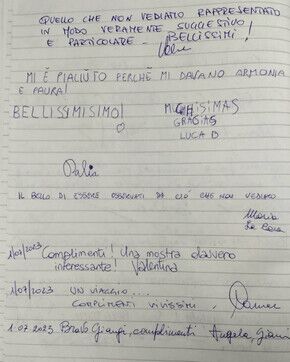 QUELLO CHE NON VEDIAMO RAPPRESENTATO
IN MODO VERAMENTE SUGGESTIVO
E PARTICOLARE - BELLISSIMI!
MI È PIACIUTO PERCHÈ MI DAVANO ARMONIA
E PAURA!
BELLISSIMISIMO!
MUCHISIMAS
GRACIAS
LUCA D
IL BELLO DI ESSERE OSSERVATI DA CIÒ CHE NON VEDIAMO
Maria
1/07/2023 Complimenti! Una mostra davvero
interessante! Valentina
1/07/2023 UN VIAGGIO....
COMPLIMENTI VIVISSIMI.
1.07.2023 Bravo Giangi, complimenti Angela